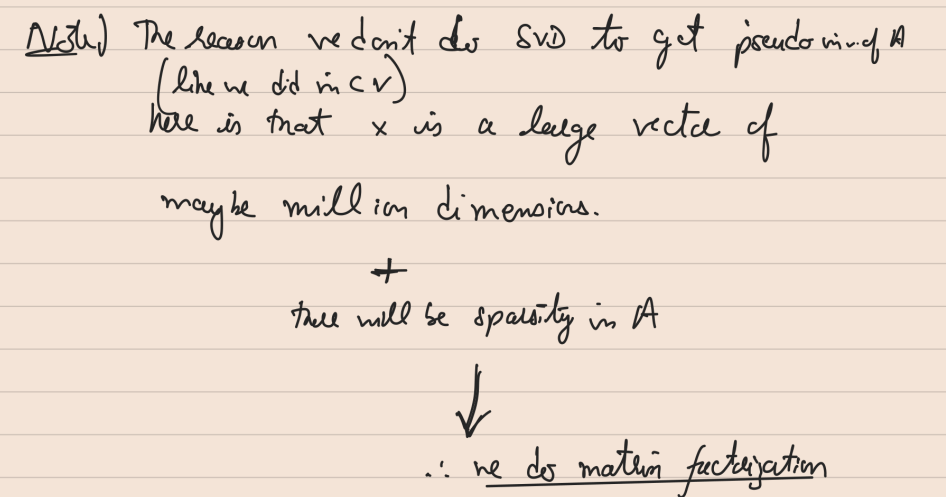 Note) The reason we don't do SVD to get pseudo inv. of A
(like we did in CV)
here is that x is a large vector of
maybe million dimensions.
+
there will be sparsity in A
↓
∴ we do matrix factorization